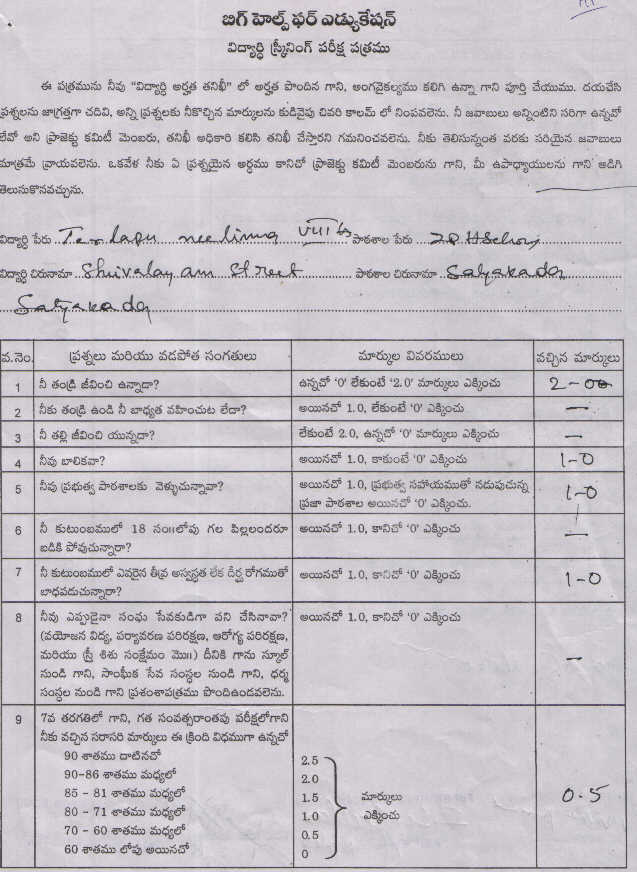 బిగ్ హెల్ప్ ఫర్ ఎడ్యుకేషన్
విద్యార్థి స్క్రీనింగ్ పరీక్ష పత్రము
ఈ పత్రమును నీవు "విద్యార్థి అర్హత తనిఖీ" లో అర్హత పొందిన గాని, అంగవైకల్యము కలిగి ఉన్నా గాని పూర్తి చేయుము. దయచేసి
ప్రశ్నలను జాగ్రత్తగా చదివి, అన్ని ప్రశ్నలకు నీకొచ్చిన మార్కులను కుడివైపు చివరి కాలమ్ లో నింపవలెను. నీ జవాబులు అన్నింటిని సరిగా ఉన్నవో
లేవో అని ప్రాజెక్టు కమిటీ మెంబరు, తనిఖీ అధికారి కలిసి తనిఖీ చేస్తారని గమనించవలెను. నీకు తెలిసున్నంత వరకు సరియైన జవాబులు
మాత్రమే వ్రాయవలెను. ఒకవేళ నీకు ఏ ప్రశ్నయైన అర్థము కానిచో ప్రాజెక్టు కమిటీ మెంబరును గాని, మీ ఉపాధ్యాయులను గాని అడిగి
తెలుసుకొనవచ్చును.
విద్యార్థి పేరు neelima VIII పాఠశాల పేరు
విద్యార్థి చిరునామా Shivalayam Street పాఠశాల చిరునామా
వ.నెం. ప్రశ్నలు మరియు వడపోత సంగతులు మార్కుల వివరములు వచ్చిన మార్కులు
1 నీ తండ్రి జీవించి ఉన్నాడా? ఉన్నచో '0' లేకుంటే '2.0' మార్కులు ఎక్కించు 2-00
2 నీకు తండ్రి ఉండి నీ బాధ్యత వహించుట లేదా? అయినచో 1.0, లేకుంటే '0' ఎక్కించు —
3 నీ తల్లి జీవించి యున్నదా? లేకుంటే 2.0, ఉన్నచో '0' మార్కులు ఎక్కించు —
4 నీవు బాలికవా? అయినచో 1.0, కాకుంటే '0' ఎక్కించు 1-0
5 నీవు ప్రభుత్వ పాఠశాలకు వెళ్ళుచున్నావా? అయినచో 1.0, ప్రభుత్వ సహాయముతో నడుపుచున్న 1-0
ప్రజా పాఠశాల అయినచో '0' ఎక్కించు.
6 నీ కుటుంబములో 18 సం॥లోపు గల పిల్లలందరూ అయినచో 1.0, కానిచో '0' ఎక్కించు —
బడికి పోవుచున్నారా?
7 నీ కుటుంబములో ఎవరైన తీవ్ర అస్వస్థత లేక దీర్ఘ రోగముతో అయినచో 1.0, కానిచో '0' ఎక్కించు 1-0
బాధపడుచున్నారా?
8 నీవు ఎప్పుడైనా సంఘ సేవకుడిగా పని చేసినావా? అయినచో 1.0, కానిచో '0' ఎక్కించు —
(వయోజన విద్య, పర్యావరణ పరిరక్షణ, ఆరోగ్య పరిరక్షణ,
మరియు స్త్రీ శిశు సంక్షేమం మొ॥) దీనికి గాను స్కూల్
నుండి గాని, సాంఘీక సేవ సంస్థల నుండి గాని, ధర్మ
సంస్థల నుండి గాని ప్రశంశాపత్రము పొందిఉండవలెను.
9 7వ తరగతిలో గాని, గత సంవత్సరాంతపు పరీక్షలోగాని
నీకు వచ్చిన సరాసరి మార్కులు ఈ క్రింది విధముగా ఉన్నచో
90 శాతము దాటినచో 2.5
90-86 శాతము మధ్యలో 2.0
85 - 81 శాతము మధ్యలో 1.5 మార్కులు 0.5
80 - 71 శాతము మధ్యలో 1.0 ఎక్కించు
70 - 60 శాతము మధ్యలో 0.5
60 శాతము లోపు అయినచో 0